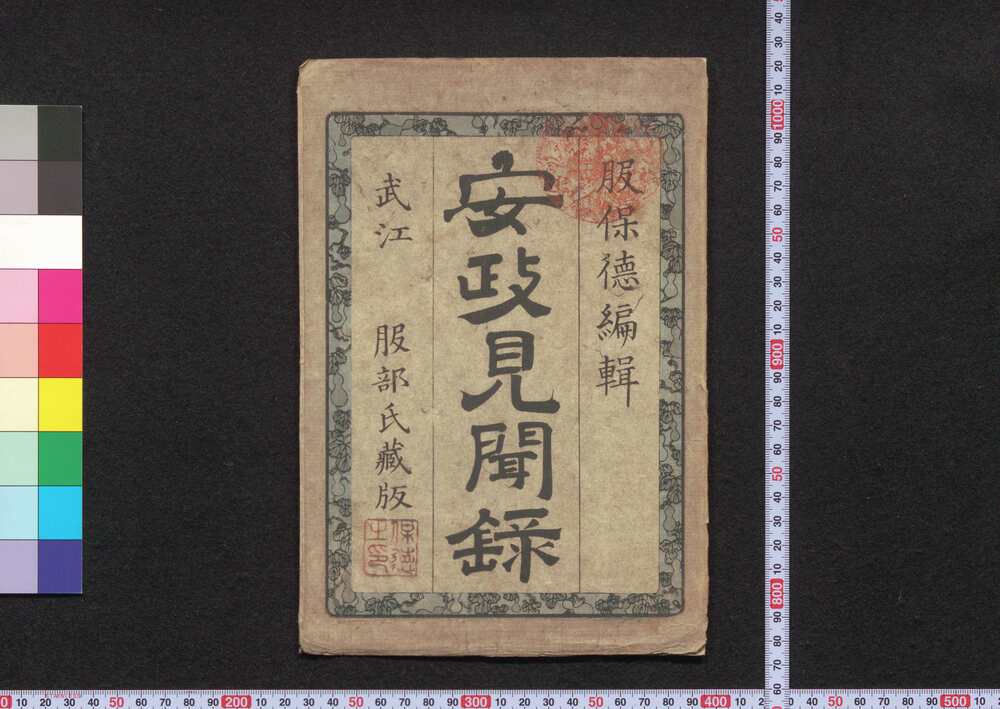 服保德編輯
安政見聞録
武江 服部氏藏版